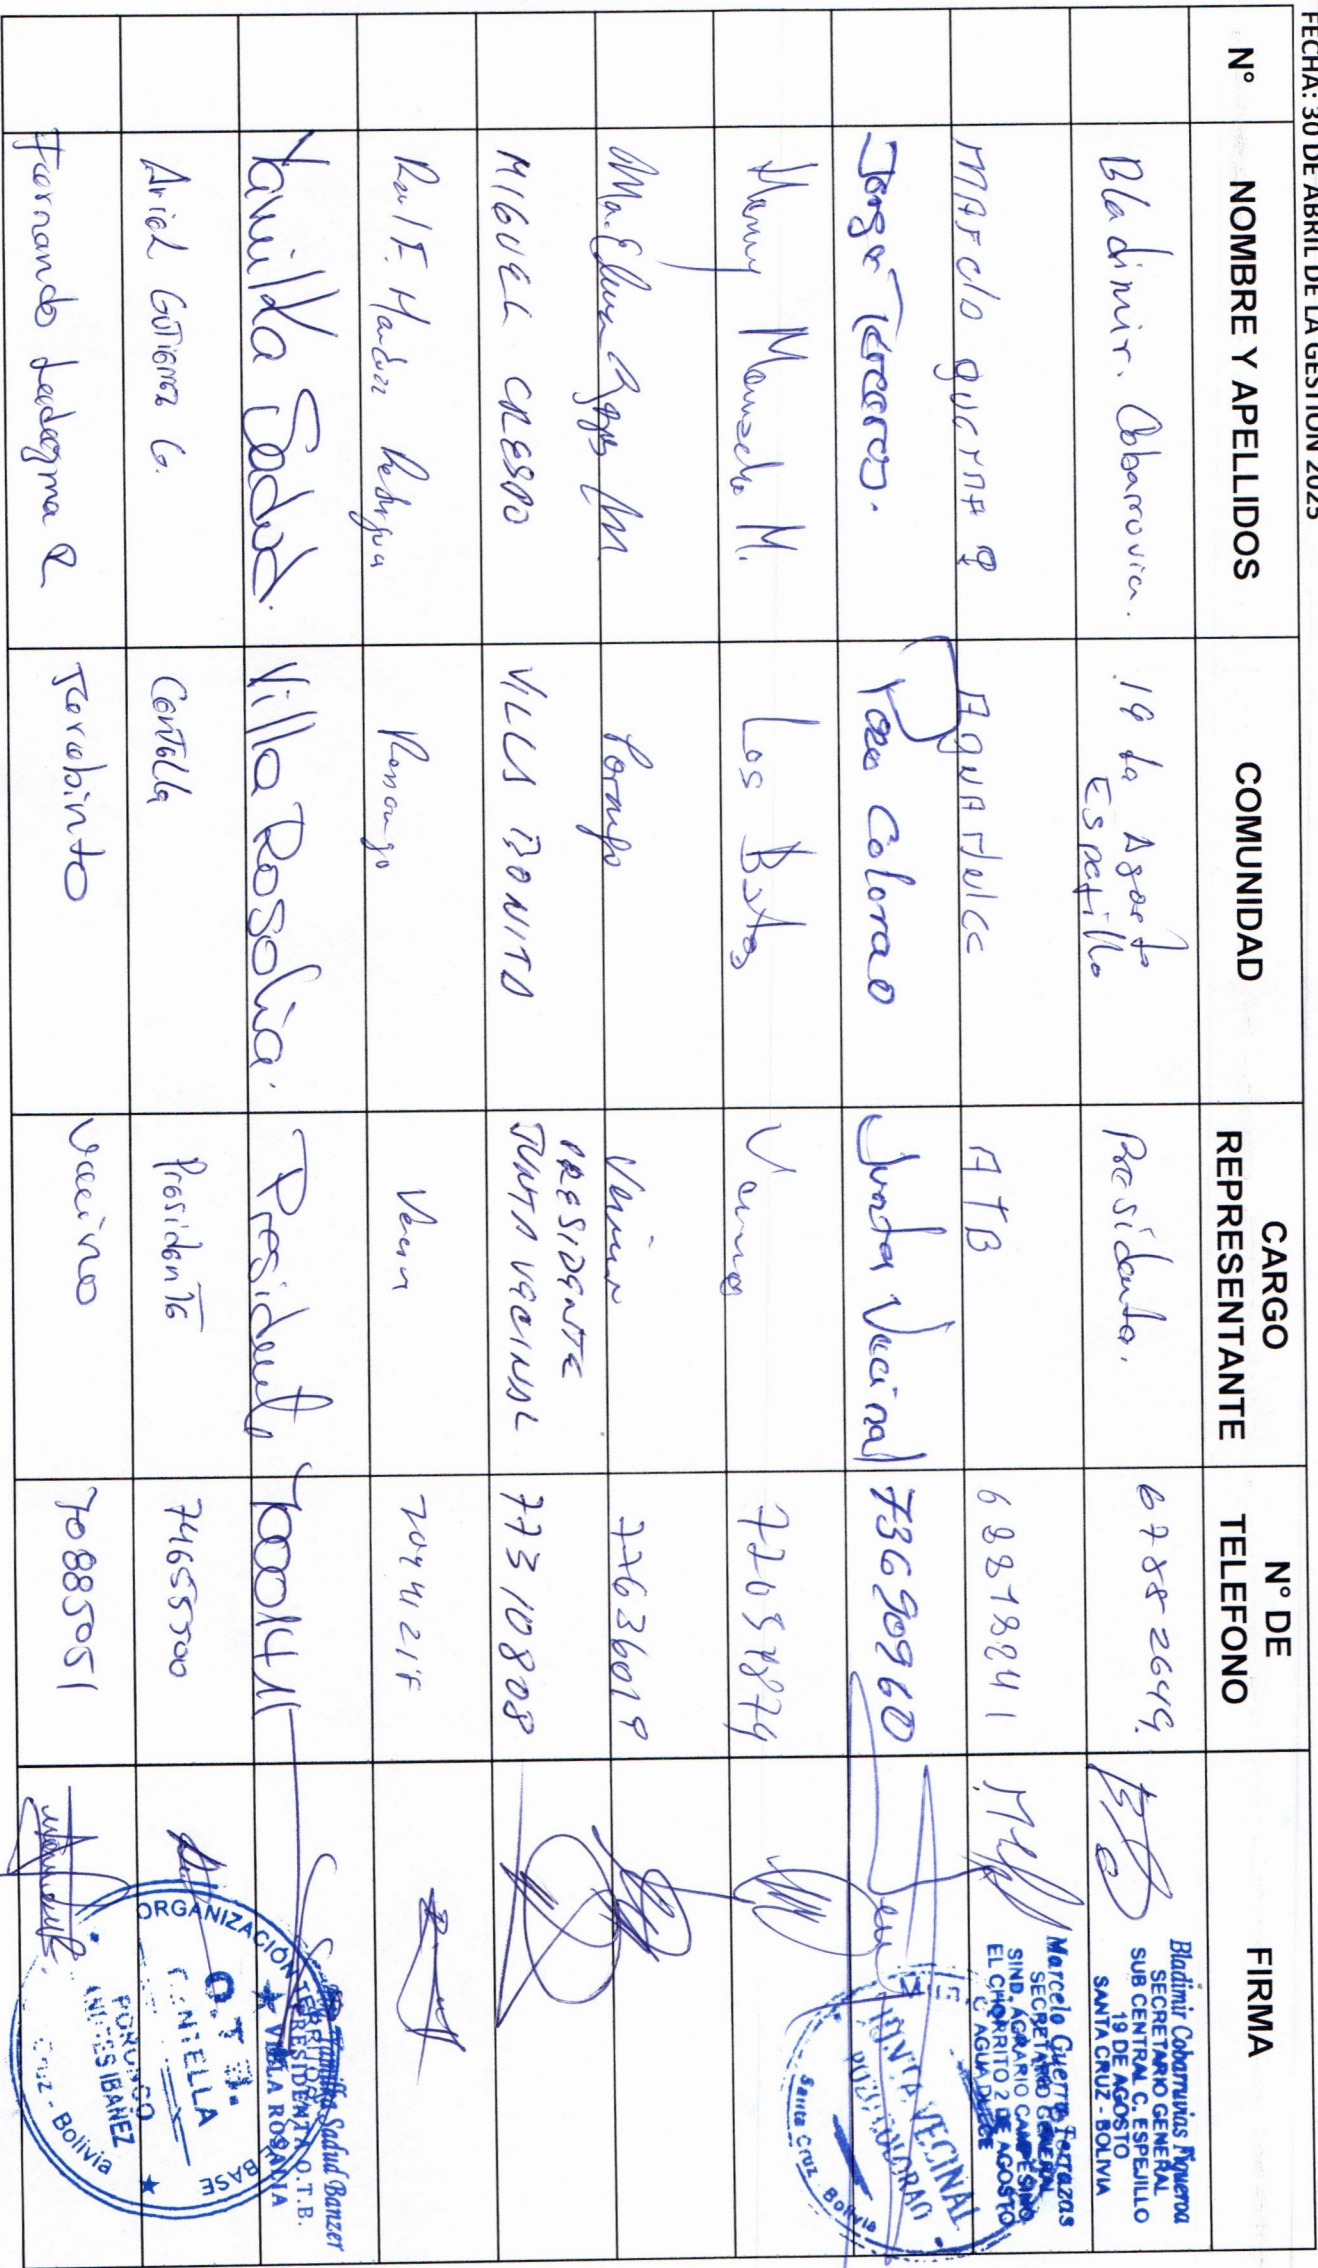 FECHA: 30 DE ABRIL DE LA GESTION 2025
N° NOMBRE Y APELLIDOS COMUNIDAD CARGO REPRESENTANTE N° DE TELEFONO FIRMA
Bladimir. Cobarruvia. 19 de Agosto Espejillo Presidente. 6788-2649.
Bladimir Cobarruvias Figueroa
SECRETARIO GENERAL
SUB CENTRAL C. ESPEJILLO
19 DE AGOSTO
SANTA CRUZ - BOLIVIA
Marcelo guerra AguAdulce ATB 68878241
Marcelo Guerra Terrazas
SECRETARIO GENERAL
SIND. AGRARIO CAMPESINO
EL CHORRITO 2 DE AGOSTO
C. AGUA DULCE
Jorge Terceros. Pozo Colorao Junta Vecinal 73690960
JUNTA VECINAL
Santa Cruz Bolivia
M. Los 77059874
Ma. Elena Rojas M. Porongo Vecina 77636019
MIGUEL CRESPO VILLA BONITA PRESIDENTE JUNTA VECINAL 77310808
Raul F. Porongo
Yamilka Sadud. Villa Rosalia. Presidente 70001411
Yamilka Sadud Banzer
PRESIDENTA O.T.B.
VILLA ROSALIA
Ariel Gutierrez G. Cantella Presidente 74655500
ORGANIZACIÓN TERRITORIAL BASE
O.T.B.
CANTELLA
PORONGO
ANDRES IBAÑEZ
Cruz - Bolivia
Fernando Ledezma R Terebinto Vecino 70885051